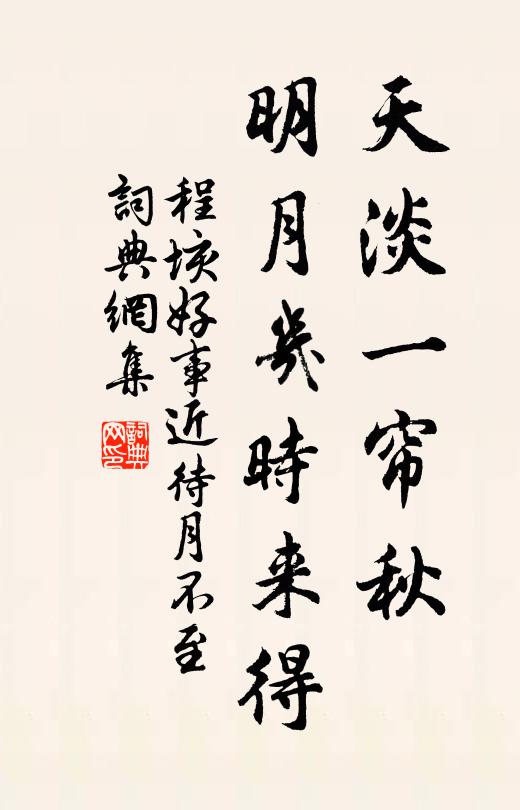 天淡一帘秋
明月幾時來得
程垓好事近待月不至
詞典網集
詞典
网印